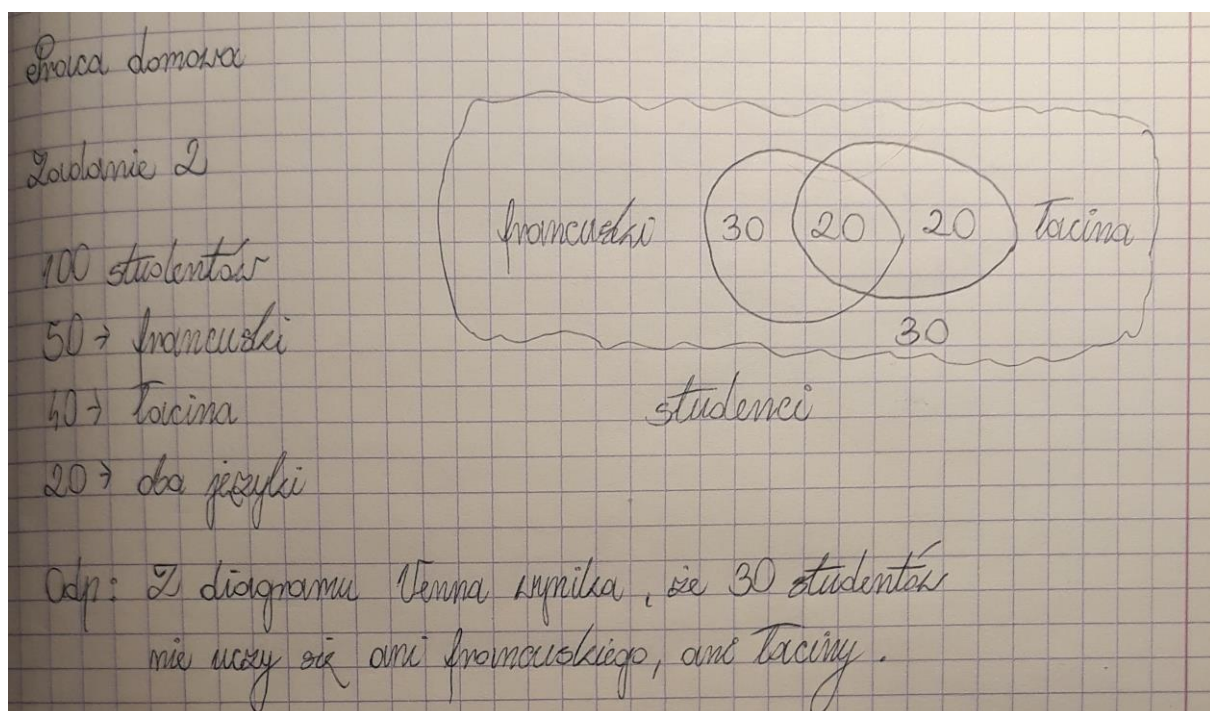 Praca domowa
Zadanie 2
100 studentów
50 → francuski
40 → łacina
20 → oba języki
francuski 30 20 20 łacina
30
studenci
Odp: Z diagramu Venna wynika, że 30 studentów
nie uczy się ani francuskiego, ani łaciny.